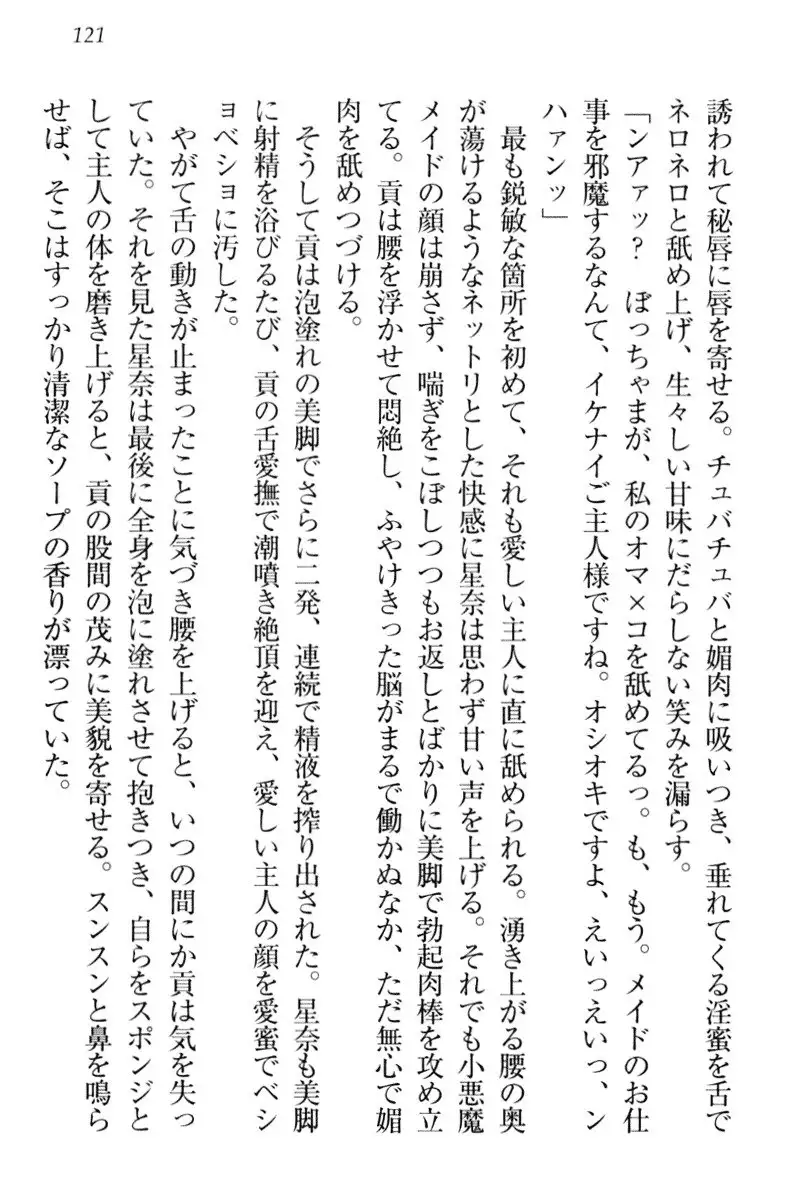 121
誘われて秘唇に唇を寄せる。チュバチュバと媚肉に吸いつき、垂れてくる淫蜜を舌で
ネロネロと舐め上げ、生々しい甘味にだらしない笑みを漏らす。
「ンアァッ？　ぼっちゃまが、私のオマ×コを舐めてるっ。も、もう。メイドのお仕
事を邪魔するなんて、イケナイご主人様ですね。オシオキですよ、えいっえいっ、ン
ハァンッ」
最も鋭敏な箇所を初めて、それも愛しい主人に直に舐められる。湧き上がる腰の奥
が蕩けるようなネットリとした快感に星奈は思わず甘い声を上げる。それでも小悪魔
メイドの顔は崩さず、喘ぎをこぼしつつもお返しとばかりに美脚で勃起肉棒を攻め立
てる。貢は腰を浮かせて悶絶し、ふやけきった脳がまるで働かぬなか、ただ無心で媚
肉を舐めつづける。
そうして貢は泡塗れの美脚でさらに二発、連続で精液を搾り出された。星奈も美脚
に射精を浴びるたび、貢の舌愛撫で潮噴き絶頂を迎え、愛しい主人の顔を愛蜜でベシ
ョベショに汚した。
やがて舌の動きが止まったことに気づき腰を上げると、いつの間にか貢は気を失っ
ていた。それを見た星奈は最後に全身を泡に塗れさせて抱きつき、自らをスポンジと
して主人の体を磨き上げると、貢の股間の茂みに美貌を寄せる。スンスンと鼻を鳴ら
せば、そこはすっかり清潔なソープの香りが漂っていた。